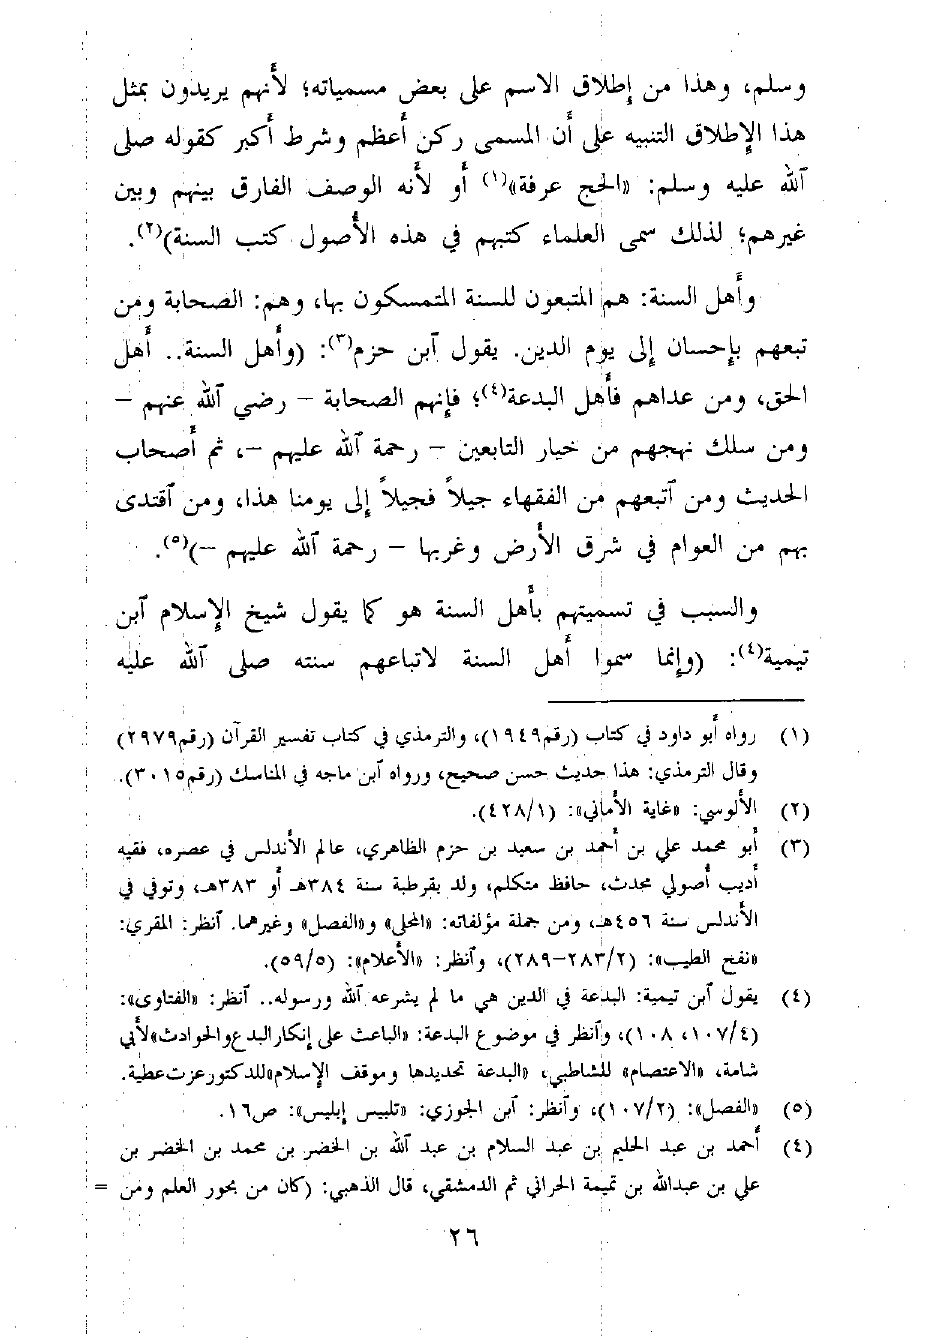 وسلم، وهذا من إطلاق الاسم على بعض مسمياته؛ لأنهم يريدون بمثل
هذا الإطلاق التنبيه على أن المسمى ركن أعظم وشرط أكبر كقوله صلى
ٱلله عليه وسلم: «الحج عرفة»(١) أو لأنه الوصف الفارق بينهم وبين
غيرهم؛ لذلك سمى العلماء كتبهم في هذه الأصول كتب السنة)(٢).
وأهل السنة: هم المتبعون للسنة المتمسكون بها، وهم: الصحابة ومن
تبعهم بإحسان إلى يوم الدين. يقول ٱبن حزم(٣): (وأهل السنة.. أهل
الحق، ومن عداهم فأهل البدعة(٤)؛ فإنهم الصحابة – رضي ٱلله عنهم –
ومن سلك نهجهم من خيار التابعين – رحمة ٱلله عليهم –، ثم أصحاب
الحديث ومن ٱتبعهم من الفقهاء جيلاً فجيلاً إلى يومنا هذا، ومن ٱقتدى
بهم من العوام في شرق الأرض وغربها – رحمة ٱلله عليهم –)(٥).
والسبب في تسميتهم بأهل السنة هو كما يقول شيخ الإسلام ٱبن
تيمية(٤): (وإنما سموا أهل السنة لاتباعهم سنته صلى ٱلله عليه
(١) رواه أبو داود في كتاب (رقم١٩٤٩)، والترمذي في كتاب تفسير القرآن (رقم٢٩٧٩)
وقال الترمذي: هذا حديث حسن صحيح، ورواه ٱبن ماجه في المناسك (رقم٣٠١٥).
(٢) الألوسي: «غاية الأماني»: (٤٢٨/١).
(٣) أبو محمد علي بن أحمد بن سعيد بن حزم الظاهري، عالم الأندلس في عصره، فقيه
أديب أصولي محدث، حافظ متكلم، ولد بقرطبة سنة ٣٨٤هـ أو ٣٨٣هـ، وتوفي في
الأندلس سنة ٤٥٦هـ، ومن جملة مؤلفاته: «المحلى» و«الفصل» وغيرهما. ٱنظر: المقري:
«نفح الطيب»: (٢٨٣/٢–٢٨٩)، وٱنظر: «الأعلام»: (٥٩/٥).
(٤) يقول ٱبن تيمية: البدعة في الدين هي ما لم يشرعه ٱلله ورسوله.. ٱنظر: «الفتاوى»:
(١٠٧/٤، ١٠٨)، وٱنظر في موضوع البدعة: «الباعث على إنكار البدع والحوادث» لأبي
شامة، «الاعتصام» للشاطبي، «البدعة تحديدها وموقف الإسلام» للدكتور عزت عطية.
(٥) «الفصل»: (١٠٧/٢)، وٱنظر: ٱبن الجوزي: «تلبيس إبليس»: ص١٦.
(٤) أحمد بن عبد الحليم بن عبد السلام بن عبد ٱلله بن الخضر بن محمد بن الخضر بن
علي بن عبدالله بن تيمية الحراني ثم الدمشقي، قال الذهبي: (كان من بحور العلم ومن =
٢٦